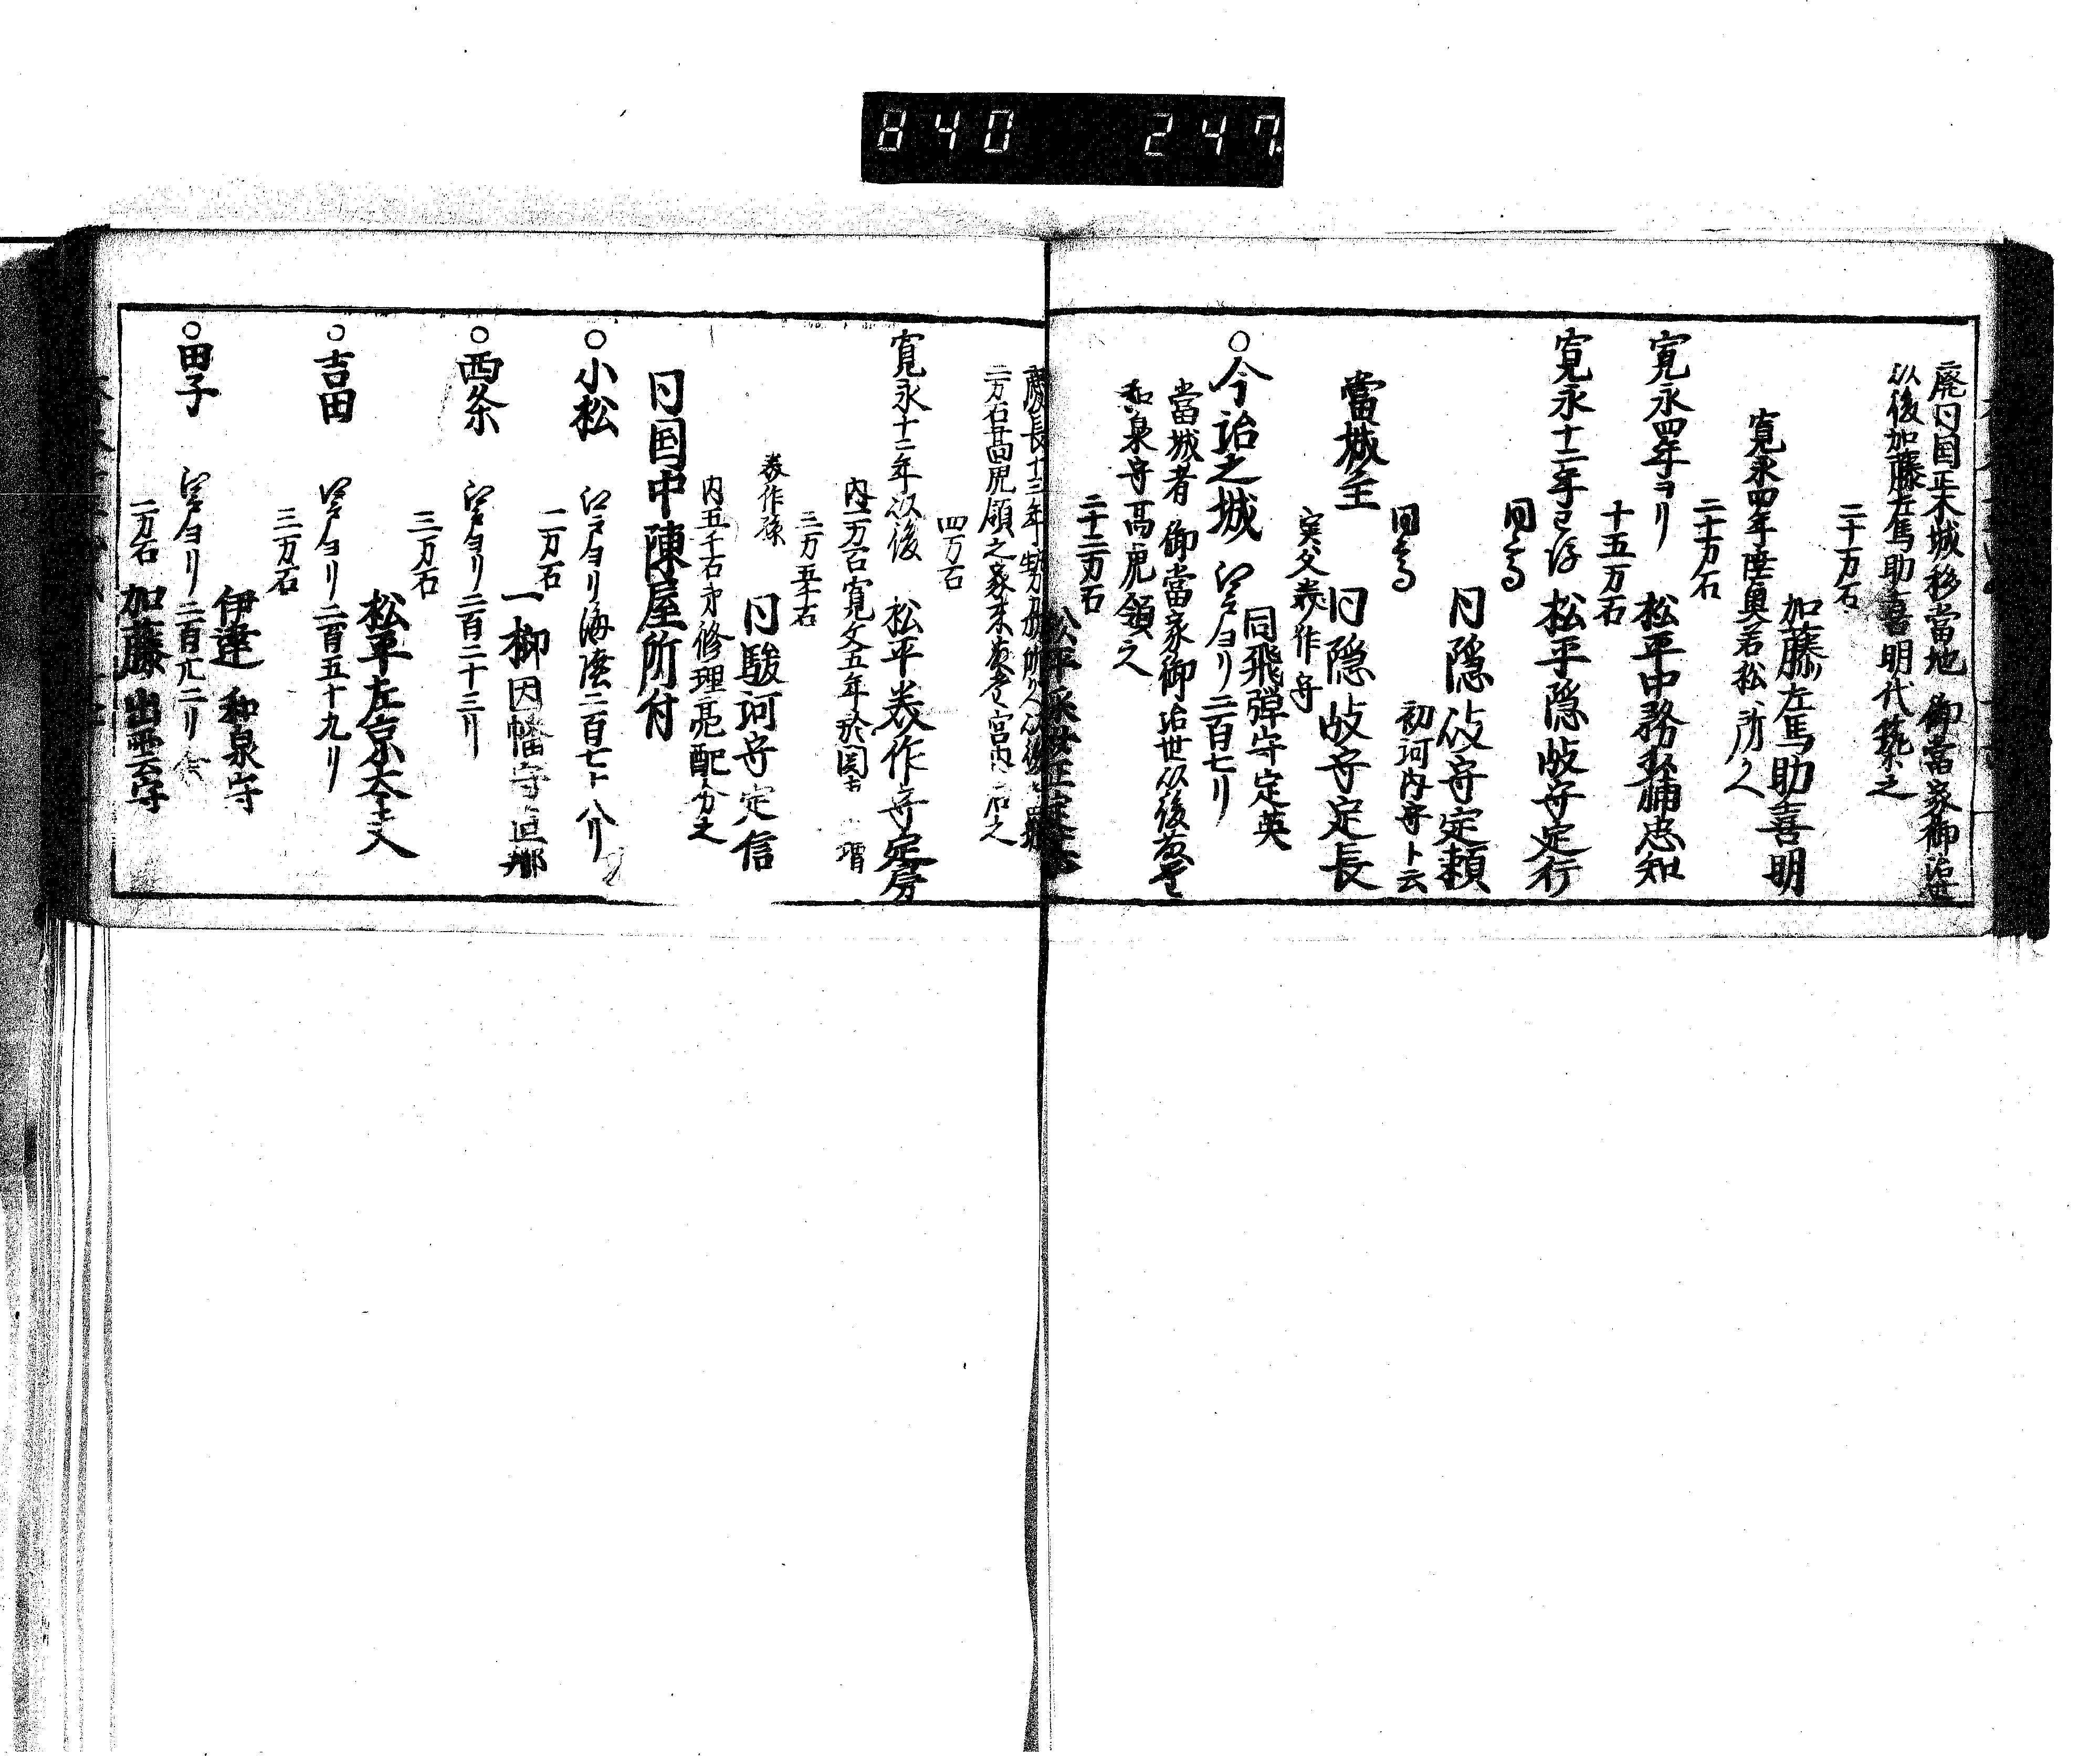 840 247
廃同国正木城移當地 御當家御治世
以後加藤左馬助喜明代築之
二十万石
加藤左馬助喜明
寛永四年陸奥若松所久
二十万石
寛永四年ヨリ 松平中務大輔忠知
十五万石
寛永十二年已後 松平隠岐守定行
同高
同隠岐守定頼
初河内守ト云
同高
當城主 同隠岐守定長
実父美作守
同飛弾守定英
○今治之城 江戸ヨリ二百七リ
當城者 御當家御治世以後
和泉守高虎領之
二十二万石
二万石高虎領之家来
四万石
寛永十二年以後 松平美作守定房
内一万石寛文五年於関
三万五千石
美作孫 同駿河守定信
内五千石弟修理亮配分之
同国中陳屋所付
○小松 江戸ヨリ海陸二百七十八リ
二万石 一柳因幡守直
○西条 江戸ヨリ二百二十三リ
三万石 松平左京太夫
○吉田 江戸ヨリ二百五十九リ
三万石 伊達和泉守
○田子 江戸ヨリ二百
一万石 加藤出雲守